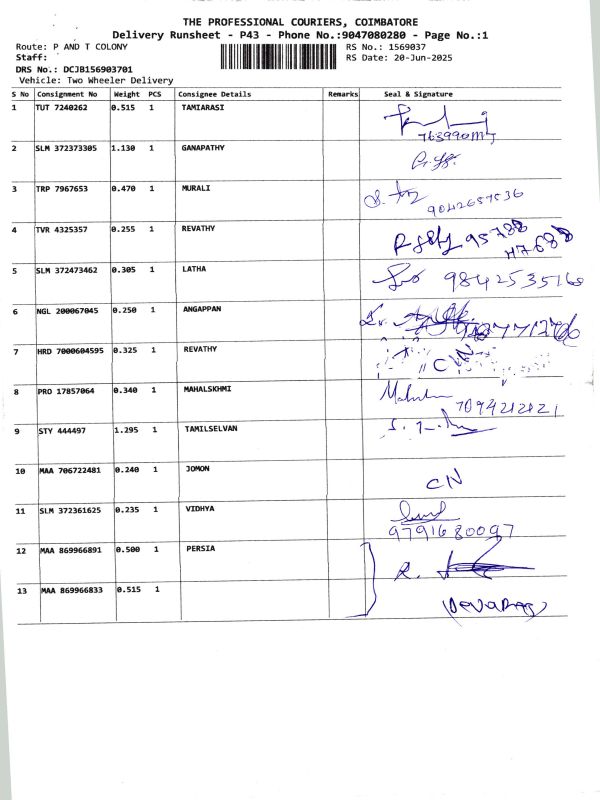 THE PROFESSIONAL COURIERS, COIMBATORE
Delivery Runsheet - P43 - Phone No.:9047080280 - Page No.:1
Route: P AND T COLONY RS No.: 1569037
Staff: RS Date: 20-Jun-2025
DRS No.: DCJB156903701
Vehicle: Two Wheeler Delivery
S No Consignment No Weight PCS Consignee Details Remarks Seal & Signature
1 TUT 7240262 0.515 1 TAMIARASI
2 SLM 372373305 1.130 1 GANAPATHY
3 TRP 7967653 0.470 1 MURALI
9042657536
4 TVR 4325357 0.255 1 REVATHY
5 SLM 372473462 0.305 1 LATHA 9842535160
6 NGL 200067045 0.250 1 ANGAPPAN
7 HRD 7000604595 0.325 1 REVATHY
CN
8 PRO 17857064 0.340 1 MAHALSKHMI
7094212121
9 STY 444497 1.295 1 TAMILSELVAN
10 MAA 706722481 0.240 1 JOMON
CN
11 SLM 372361625 0.235 1 VIDHYA
9791680097
12 MAA 869966891 0.500 1 PERSIA
13 MAA 869966833 0.515 1
(DEVARAJ)